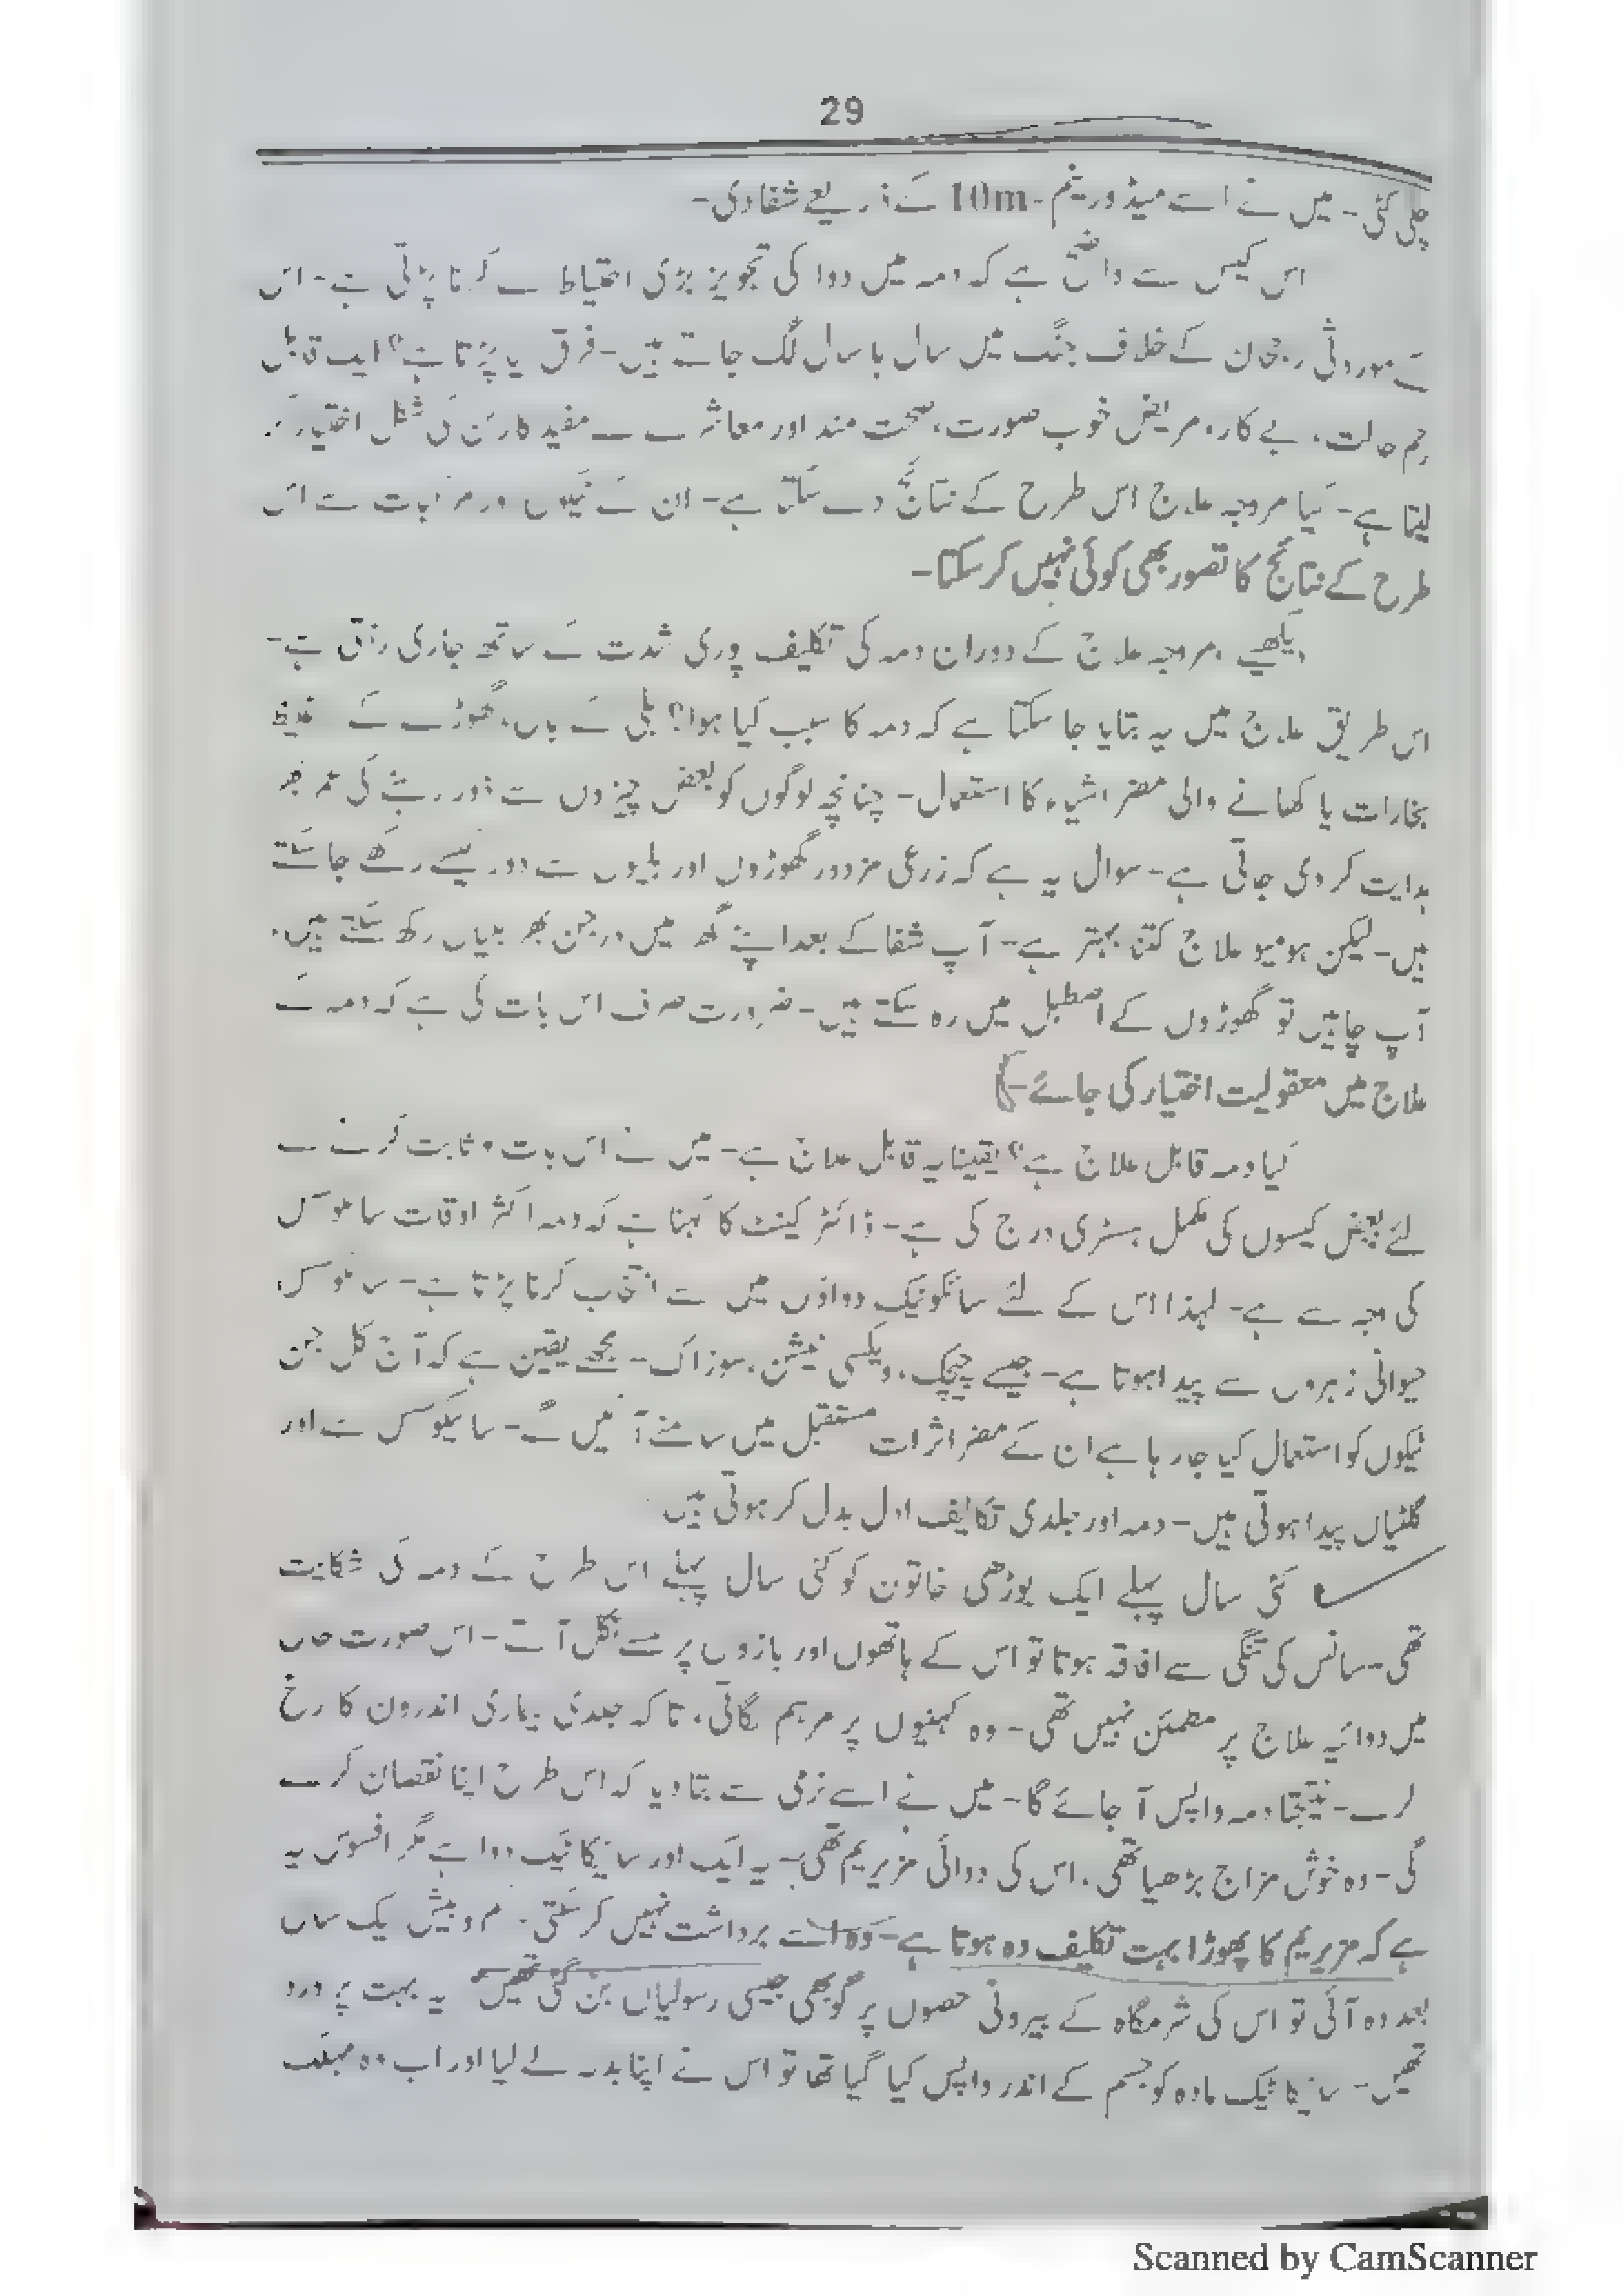 29
چلی گئی۔ میں نے اسے میڈورینم-10m کے ذریعے شفا دی۔
اس کیس سے واضح ہے کہ دمہ میں دوا کی تجویز بڑی احتیاط سے کرنا پڑتی ہے۔ اس
کے موروثی رجحان کے خلاف جنگ میں سال ہا سال لگ جاتے ہیں۔ فرق کیا پڑتا ہے؟ ایک قابل
رحم حالت، بے کار، مریض خوب صورت، صحت مند اور معاشرے کے مفید کارکن کی شکل اختیار کر
لیتا ہے۔ کیا مروجہ علاج اس طرح کے نتائج دے سکتا ہے۔ ان کے ٹیکوں اور مرکبات سے اس
طرح کے نتائج کا تصور بھی کوئی نہیں کر سکتا۔
دیکھیے، مروجہ علاج کے دوران دمہ کی تکلیف پوری شدت کے ساتھ جاری رہتی ہے۔
اس طریق علاج میں یہ بتایا جا سکتا ہے کہ دمہ کا سبب کیا ہوا؟ بلی کے بال، گھوڑے کے غلیظ
بخارات یا کھانے والی مضر اشیاء کا استعمال۔ چنانچہ لوگوں کو بعض چیزوں سے دور رہنے کی عمر بھر
ہدایت کر دی جاتی ہے۔ سوال یہ ہے کہ زرعی مزدور گھوڑوں اور بلیوں سے دور کیسے رکھے جا سکتے
ہیں۔ لیکن ہومیو علاج کتنا بہتر ہے۔ آپ شفا کے بعد اپنے گھر میں درجن بھر بلیاں رکھ سکتے ہیں،
آپ چاہیں تو گھوڑوں کے اصطبل میں رہ سکتے ہیں۔ ضرورت صرف اس بات کی ہے کہ دمہ کے
علاج میں معقولیت اختیار کی جائے۔
کیا دمہ قابل علاج ہے؟ یقینا یہ قابل علاج ہے۔ میں نے اس بات کو ثابت کرنے کے
لئے بعض کیسوں کی مکمل ہسٹری درج کی ہے۔ ڈاکٹر کینٹ کا کہنا ہے کہ دمہ اکثر اوقات
کی وجہ سے ہے۔ لہذا اس کے لئے سائکوٹیک دواؤں میں سے انتخاب کرنا پڑتا ہے۔
حیوانی زہروں سے پیدا ہوتا ہے۔ جیسے چیچک، ویکسی نیشن، سوزاک۔ مجھے یقین ہے کہ آج کل جن
ٹیکوں کو استعمال کیا جا رہا ہے ان کے مضر اثرات مستقبل میں سامنے آئیں گے۔ سائیکوسس سے اور
گلٹیاں پیدا ہوتی ہیں۔ دمہ اور جلدی تکالیف ادل بدل کر ہوتی ہیں۔
کئی سال پہلے ایک بوڑھی خاتون کو کئی سال پہلے اس طرح کے دمہ کی شکایت
تھی۔ سانس کی تنگی سے افاقہ ہوتا تو اس کے ہاتھوں اور بازوں پر مسے نکل آتے۔ اس صورت حال
میں دوائیہ علاج پر مطمئن نہیں تھی۔ وہ کہنیوں پر مرہم لگاتی، تا کہ جلدی بیماری اندرون کا رخ
کرے۔ نتیجتا دمہ واپس آ جائے گا۔ میں نے اسے نرمی سے بتا دیا کہ اس طرح اپنا نقصان کرے
گی۔ وہ خوش مزاج بڑھیا تھی، اس کی دوائی مزیریم تھی۔ یہ ایک اور سائیکاٹیک دوا ہے مگر افسوس یہ
ہے کہ مزیریم کا پھوڑا بہت تکلیف دہ ہوتا ہے۔ وہ اسے برداشت نہیں کر سکتی۔ کم و بیش یک سال
بعد وہ آئی تو اس کی شرمگاہ کے بیرونی حصوں پر گوبھی جیسی رسولیاں بن گئی تھیں یہ بہت پر درد
تھیں۔ سائیکاٹیک مادہ کو جسم کے اندر واپس کیا گیا تھا تو اس نے اپنا بدلہ لے لیا اور اب وہ مہلک
Scanned by CamScanner